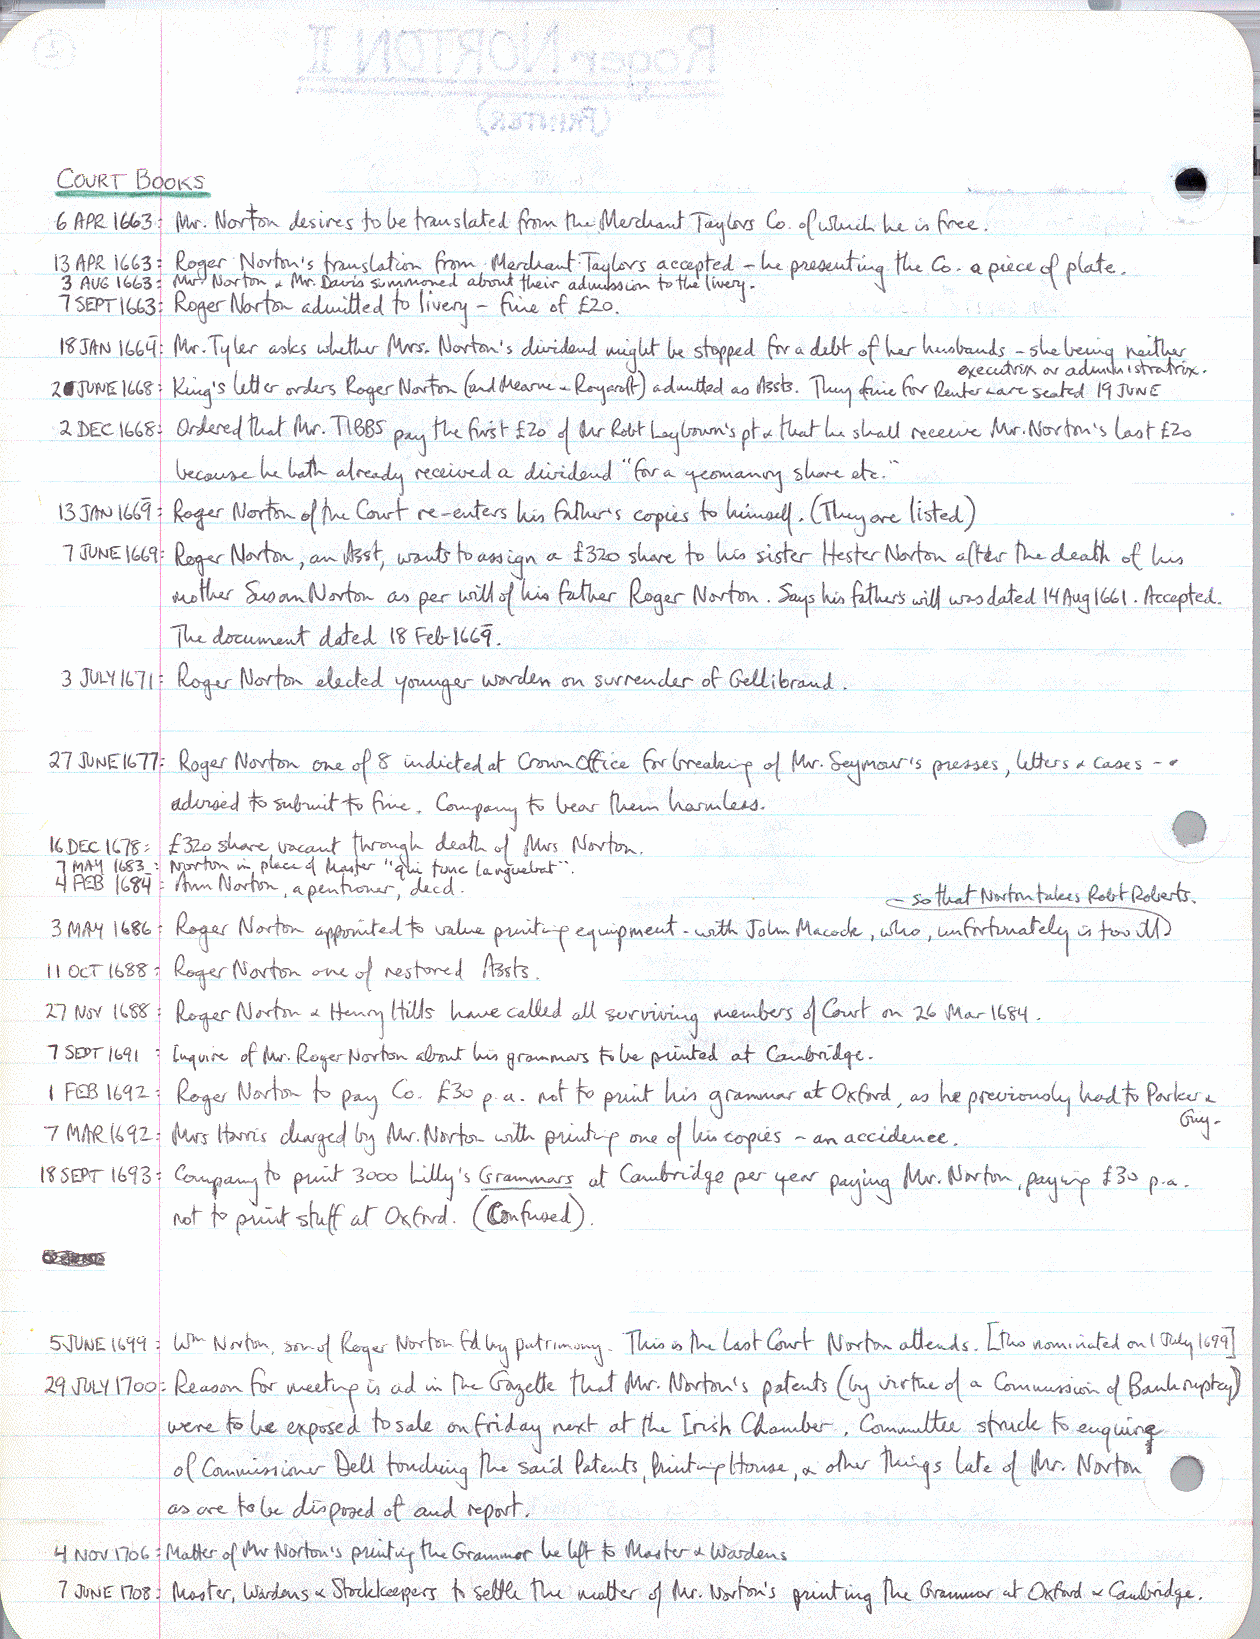 COURT BOOKS
6 APR 1663: Mr. Norton desires to be translated from the Merchant Taylors Co. of which he is free.
13 APR 1663: Roger Norton's translation from Merchant Taylors accepted – he presenting the Co. a piece of plate.
3 AUG 1663: Mr. Norton & Mr. Davis summoned about their admission to the livery.
7 SEPT 1663: Roger Norton admitted to livery – fine of £20.
18 JAN 1664: Mr. Tyler asks whether Mrs. Norton's dividend might be stopped for a debt of her husbands – she being neither
executrix or administratrix.
2 JUNE 1668: King's letter orders Roger Norton (and Mearne & Roycroft) admitted as Assts. They fine for Renter & are seated 19 JUNE
2 DEC 1668: Ordered that Mr. TIBBS pay the first £20 of Mr Robt Leybown's pt & that he shall receive Mr. Norton's last £20
because he hath already received a dividend "for a yeomanry share etc."
13 JAN 1669: Roger Norton of the Court re-enters his father's copies to himself. (They are listed)
7 JUNE 1669: Roger Norton, an Asst, wants to assign a £320 share to his sister Hester Norton after the death of his
mother Susan Norton as per will of his father Roger Norton. Says his father's will was dated 14 Aug 1661. Accepted.
The document dated 18 Feb 1669.
3 JULY 1671: Roger Norton elected younger warden on surrender of Gellibrand.
27 JUNE 1677: Roger Norton one of 8 indicted at Crown Office for breaking of Mr. Seymour's presses, letters & cases –
advised to submit to fine. Company to bear them harmless.
16 DEC 1678: £320 share vacant through death of Mrs Norton.
7 MAY 1683: Norton in place of Master "qui tunc languebat".
4 FEB 1684: Ann Norton, a pentioner, decd.
– so that Norton takes Robt Roberts.
3 MAY 1686: Roger Norton appointed to value printing equipment – with John Macock, who, unfortunately is too ill
11 OCT 1688: Roger Norton one of restored Assts.
27 NOV 1688: Roger Norton & Henry Hills have called all surviving members of Court on 26 Mar 1684.
7 SEPT 1691: Inquire of Mr. Roger Norton about his grammars to be printed at Cambridge.
1 FEB 1692: Roger Norton to pay Co. £30 p.a. not to print his grammar at Oxford, as he previously had to Parker &
Guy.
7 MAR 1692: Mrs Harris charged by Mr. Norton with printing one of his copies – an accidence.
18 SEPT 1693: Company to print 3000 Lilly's Grammars at Cambridge per year paying Mr. Norton, paying £30 p.a.
not to print stuff at Oxford. (Confused).
5 JUNE 1699: Wm Norton, son of Roger Norton fd by patrimony. This is the last Court Norton attends. [Tho nominated on 1 July 1699]
29 JULY 1700: Reason for meeting is ad in the Gazette that Mr. Norton's patents (by virtue of a Commission of Bankruptcy)
were to be exposed to sale on Friday next at the Irish Chamber, Committee struck to enquire
of Commissioner Dell touching the said Patents, Printing House, & other things late of Mr. Norton
as are to be disposed of and report.
4 NOV 1706: Matter of Mr Norton's printing the Grammar be left to Master & Wardens
7 JUNE 1708: Master, Wardens & Stockkeepers to settle the matter of Mr. Norton's printing the Grammar at Oxford & Cambridge.